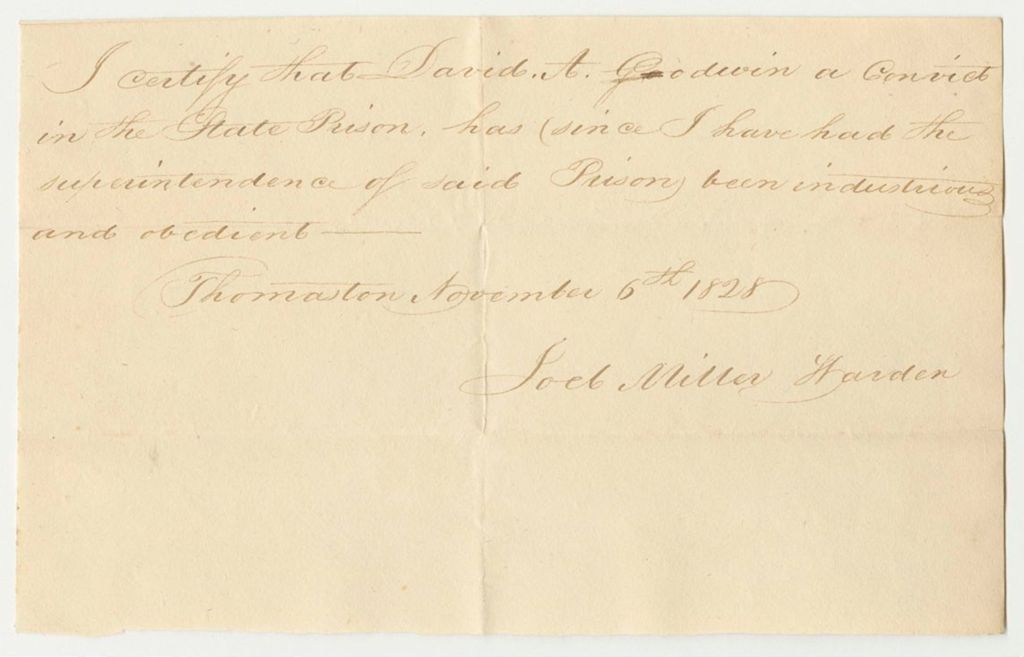 I certify that David. A. Goodwin a Convict
in the State Prison, has (since I have had the
superintendence of said Prison) been industrious
and obedient —
Thomaston November 6th 1828
Joel Miller Warden